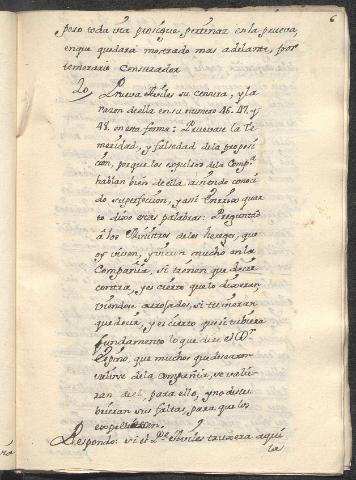 6
poso toda via prosigue, pertinaz en la prueva,
en que quedará mostrado mas adelante, por
temerario Censurador
20, Prueva Aviles su censura, y la
razon de ella en su numero 46. 47. y
48. en esta forma: Pruevase la te
meridad, y falsedad de la proposi
cion, porque los expulsos de la Compª
hablan bien de ella, aviendo conoci
do su perfeccion, y assi
to dixo estas palabras: Preguntad
a los Ministros de los hereges, que
oy viven, y vieron mucho en la
Compañia, si tienen que decir
contra, y es cierto que lo dixeran,
viendose arrojados, si tuvieran
que decir, y es cierto que si tubiera
fundamento lo que dice el Dr.
Espino, que muchos que desearon
salirse de la Compañia, se valie
ran de el, para ello, y no descu
brieran sus faltas, para que los
expeliessen.
Respondo: si el Pe. Aviles truxera aqui
la